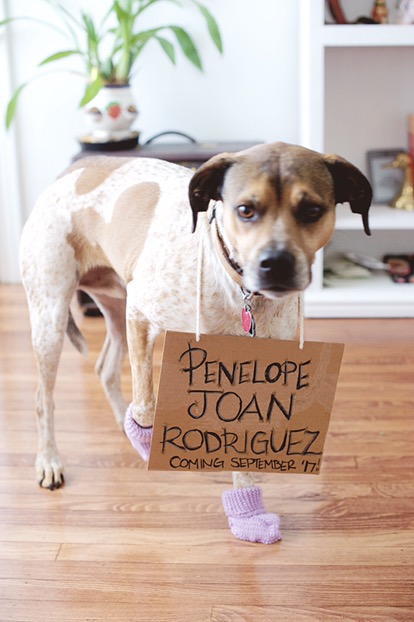 PENELOPE
JOAN
RODRIGUEZ
COMING SEPTEMBER '17!